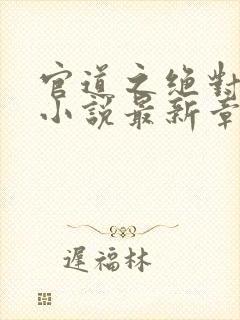 官道之绝對
小說最新章
遲福林